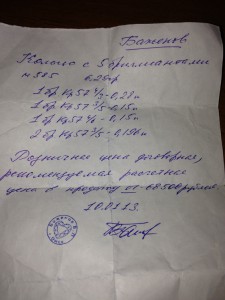 Баженов
Кольцо с 5 бриллиантами
м 585 0,26гр
1 бр Кр57 4/5-0,28к
1 бр Кр57 3/5-0,15к
1 бр Кр57 -0,15к
2 бр Кр57 -0,196к
Розничная цена договорная,
рекомендуемая расчетная
цена в продажу от 68500рублей
10.01.13.